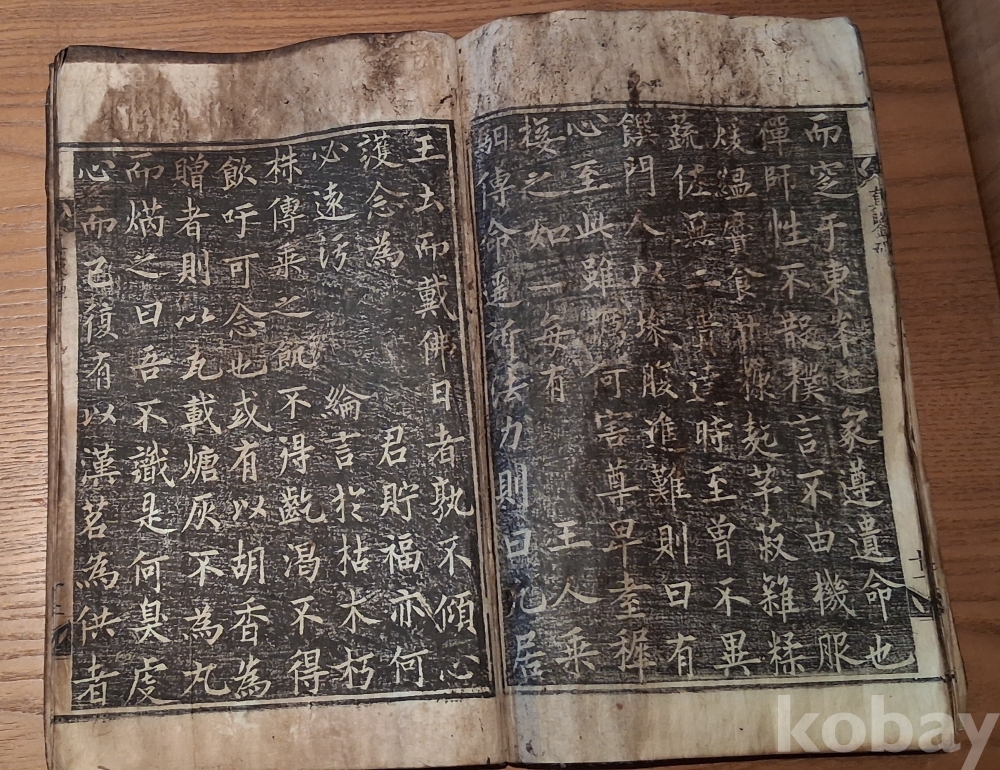 真鑒碑
十一
而窆于東峯之冢遵遺命也
禪師性不散樸言不由機服
煖縕黂食甘糠麧芧菽雜糅
蔬佐無二貴達時至曾不異
饌門人以墋腹進難則曰有
心至此雖糲何害尊卑耋穉
接之如一每有 王人乘
馹傳命遙祈法力則曰凡居
王土而戴佛日者孰不傾心
護念為 君貯福亦何
必遠汚 綸言於枯木朽
株傳乘之飢不得齕渴不得
飲吁可念也或有以胡香為
贈者則以瓦載煻灰不為丸
而焫之曰吾不識是何臭虔
心而已復有以漢茗為供者
kobay